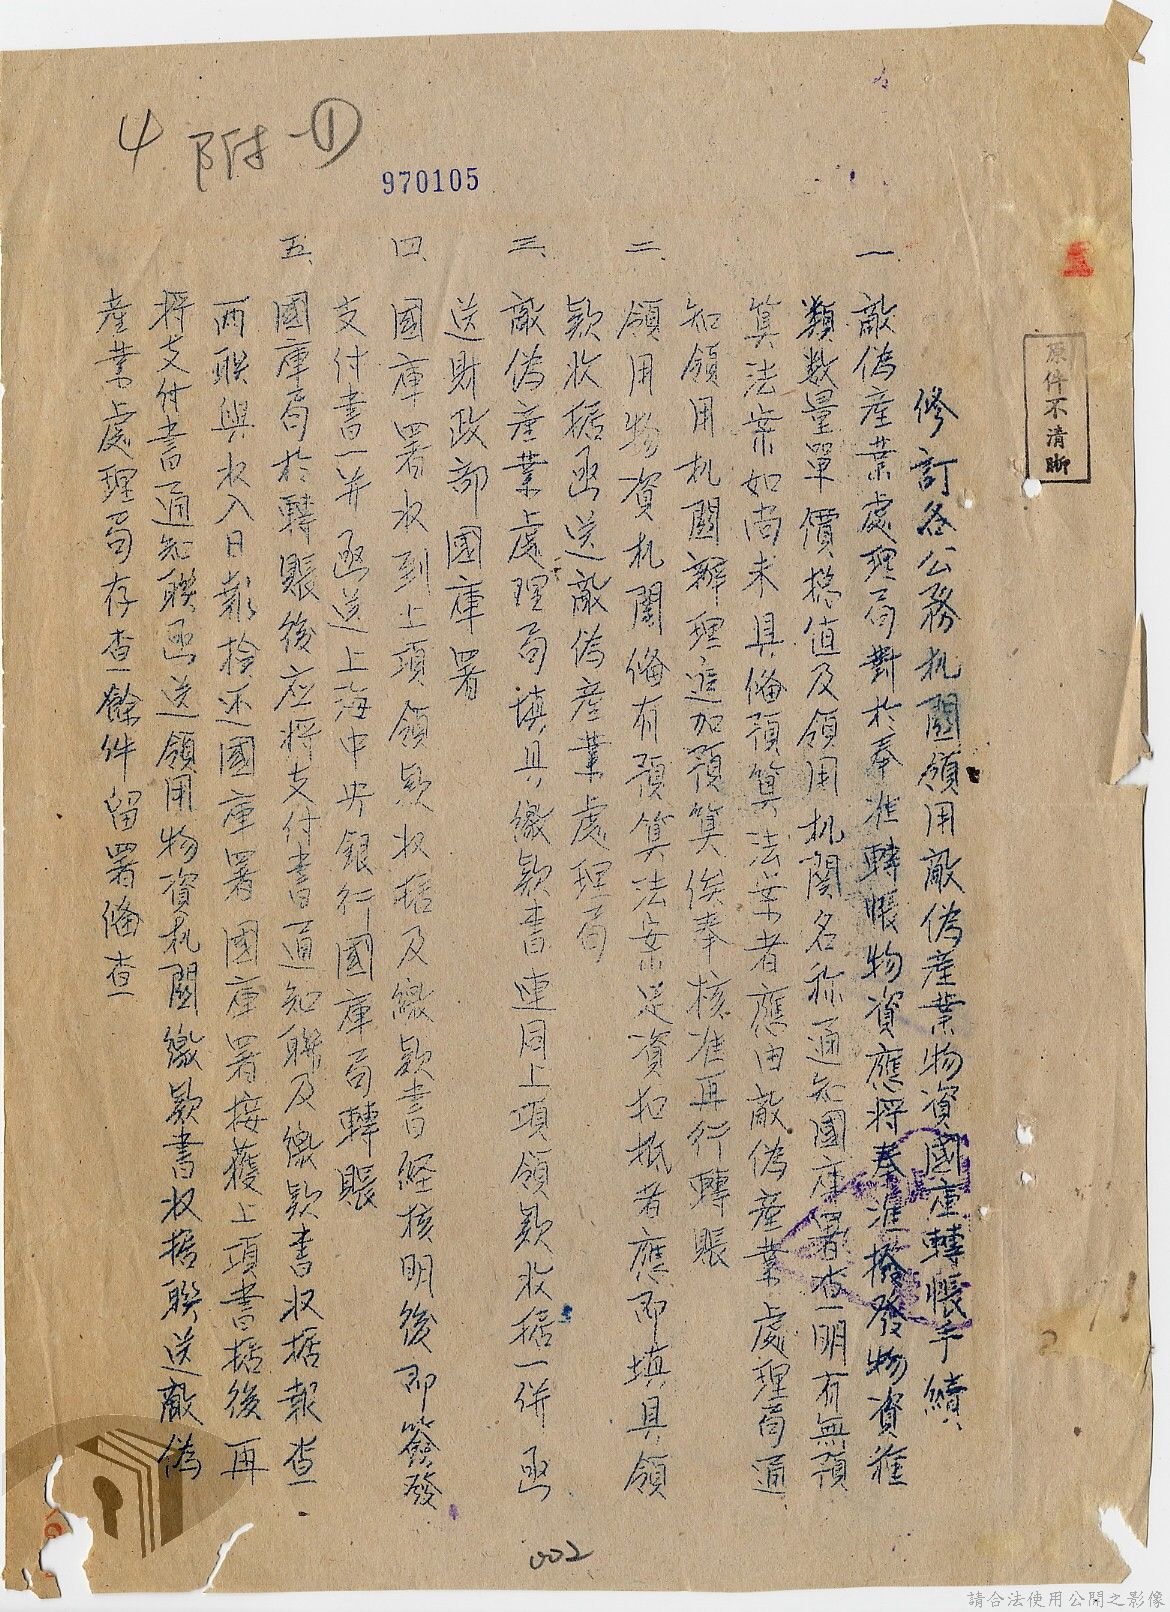 4 附一①
970105
原件不清晰
修訂各公務机關領用敵偽產業物資國庫轉帳手續
一、敵偽產業處理局對於奉准轉賬物資應將奉准撥發物資種
類数量單價總值及領用机関名称通知國庫署查明有無預
算法案如尚未具備預算法案者應由敵偽產業處理局通
知領用机關辦理追加預算俟奉核准再行轉賬
二、領用物資机關備有預算法案足資扣抵者應即填具領
欵收据函送敵偽產業處理局
三、敵偽產業處理局填具繳欵書連同上項領欵收据一併函
送財政部國庫署
四、國庫署收到上項領欵收据及繳欵書經核明後即簽發
支付書一并函送上海中央銀行國庫局轉賬
五、國庫局於轉賬後应將支付書通知聯及繳欵書收据報查
兩联與收入日報檢还國庫署國庫署接獲上項書据後再
將支付書通知聯函送領用物資机關繳欵書收据聯送敵偽
產業處理局存查餘件留署備查
002
請合法使用公開之影像